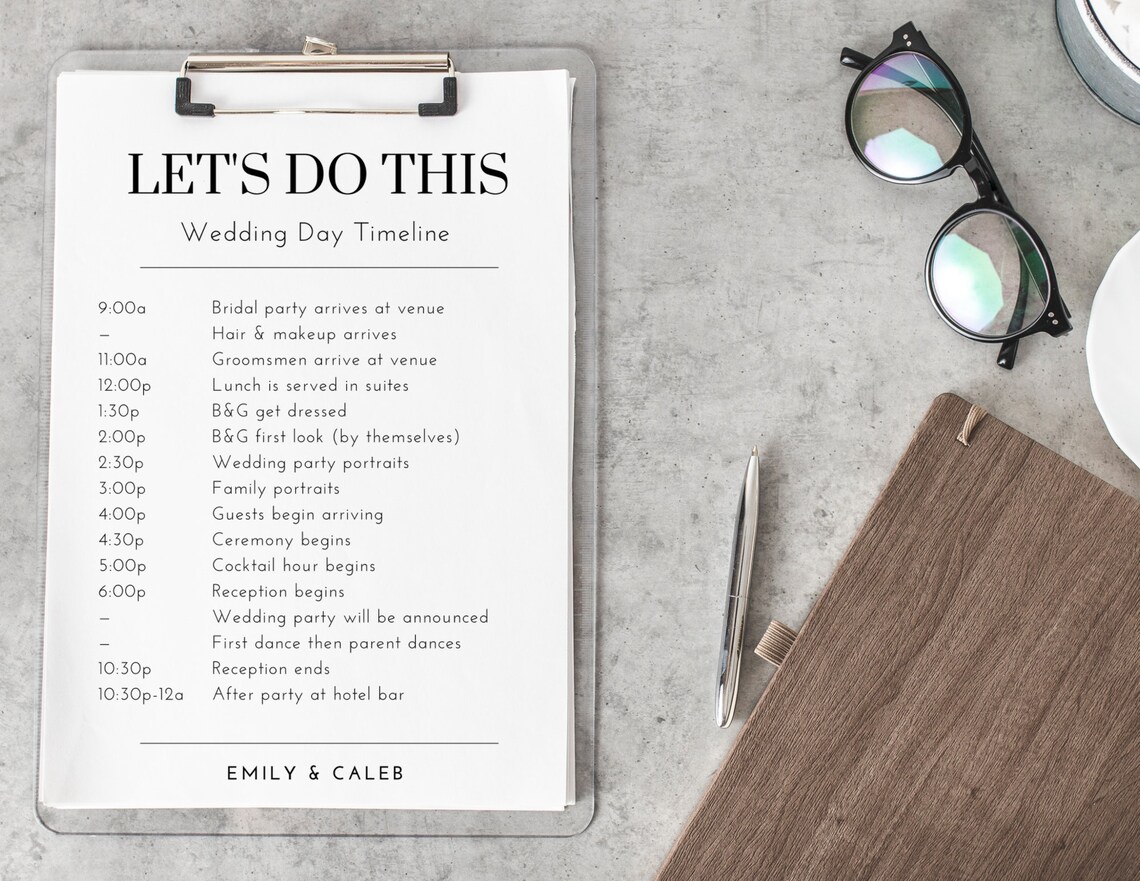 LET'S DO THIS
Wedding Day Timeline
9:00a Bridal party arrives at venue
– Hair & makeup arrives
11:00a Groomsmen arrive at venue
12:00p Lunch is served in suites
1:30p B&G get dressed
2:00p B&G first look (by themselves)
2:30p Wedding party portraits
3:00p Family portraits
4:00p Guests begin arriving
4:30p Ceremony begins
5:00p Cocktail hour begins
6:00p Reception begins
– Wedding party will be announced
– First dance then parent dances
10:30p Reception ends
10:30p-12a After party at hotel bar
EMILY & CALEB